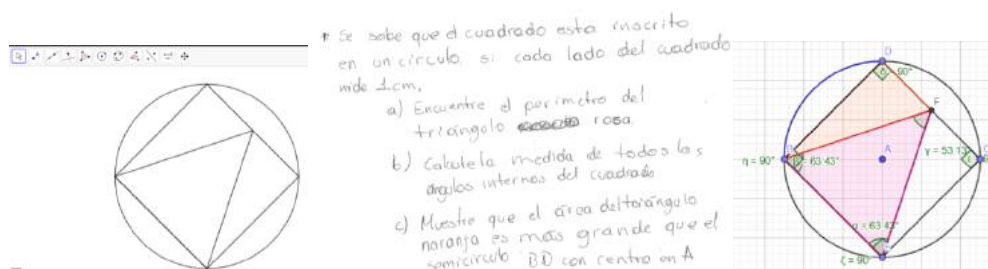 * Se sabe que el cuadrado esta inscrito
en un círculo. si cada lado del cuadrado
mide 1cm.
a) Encuentre el perimetro del
triángulo rosa.
b) Calcule la medida de todos los
ángulos internos del cuadrado
c) Muestre que el área del triángulo
naranja es más grande que el
semicirculo BD con centro en A
D
90°
F
η = 90°
β = 63.43°
A
γ = 53.13°
α = 63.43°
ζ = 90°